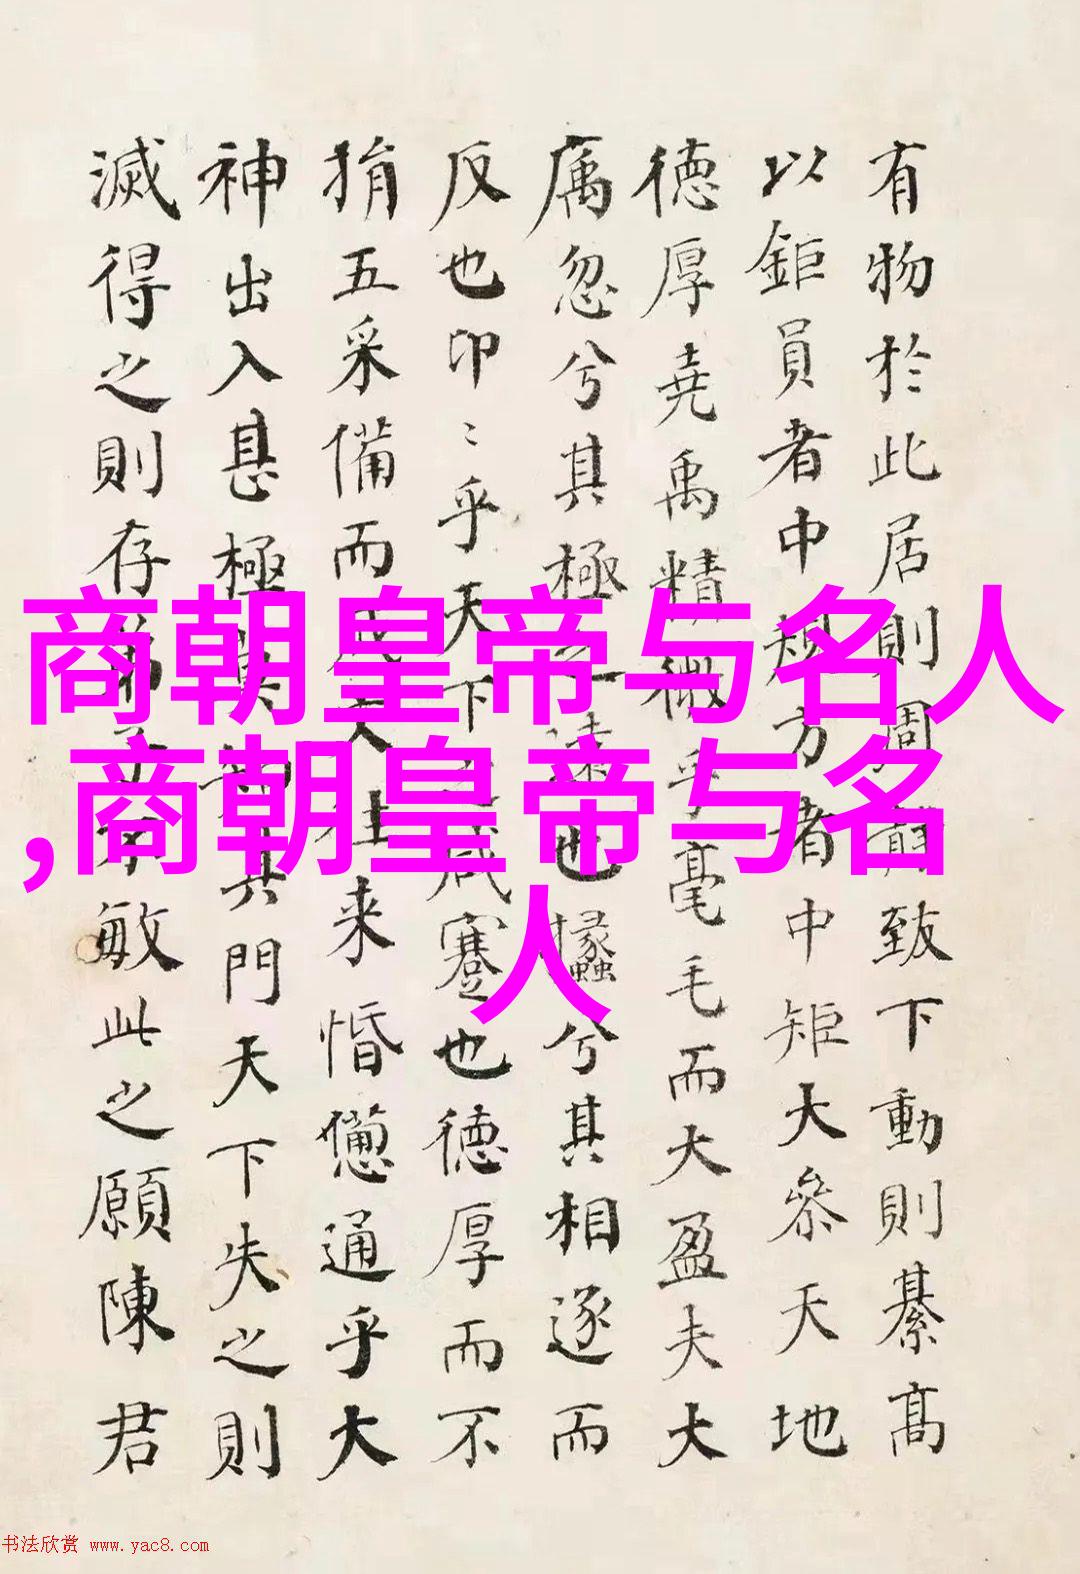 有物於此居則周致下動則綦高
以鉅員者中規方者中矩大參天地
德厚堯禹精微乎毫毛而大盈夫大
厲忽兮其極之遠也攭兮其相逐而
反也卬〻乎天下之咸蹇也德厚而不
捐五采備而成文往来惛憊通乎大
神出入甚極莫知其門天下失之則
滅得之則存弟子不敏此之願陳君
商朝皇帝与名人
,商朝皇帝与名
人
书法欣赏 www.yac8.com